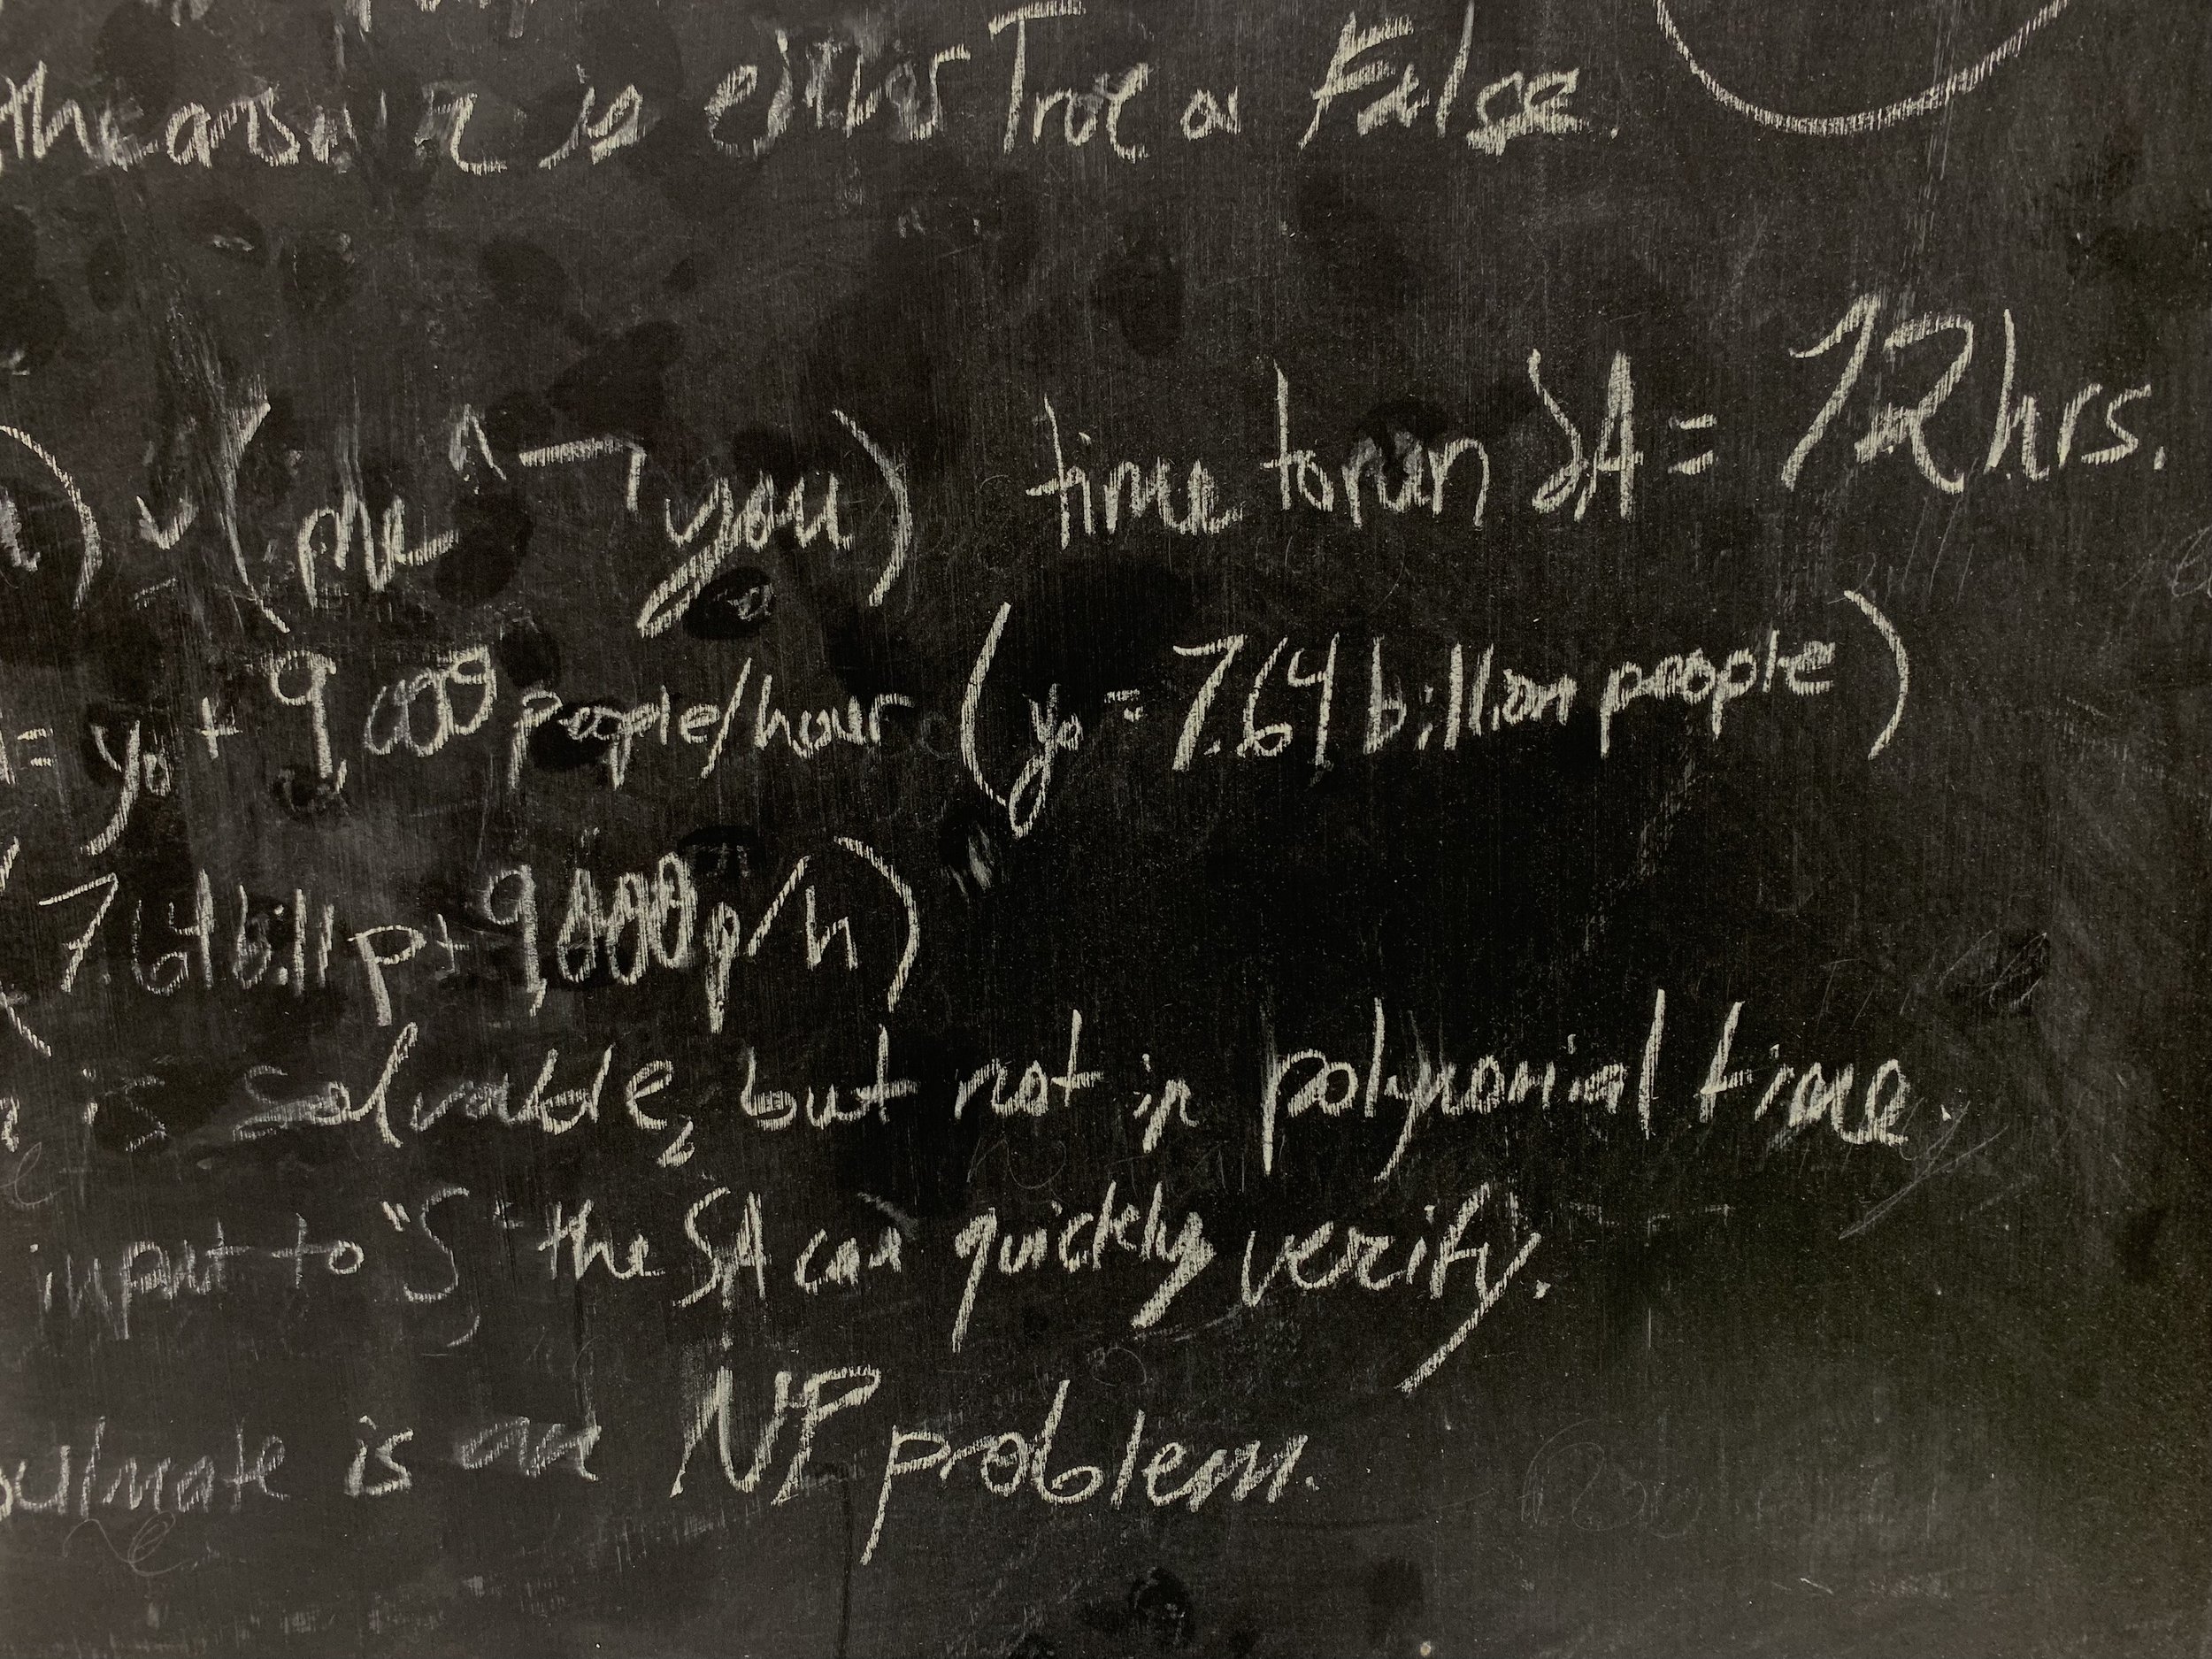 the answer is either True or False.
) ∨ (me ^ ¬ you) time to run SA = 72 hrs.
= y₀ + 9,000 people/hour (y₀ = 7.64 billion people)
7.64 bill p + 9,000 p/h)
is solvable, but not in polynomial time.
input to "S" the SA can quickly verify.
oulmate is an NP problem.